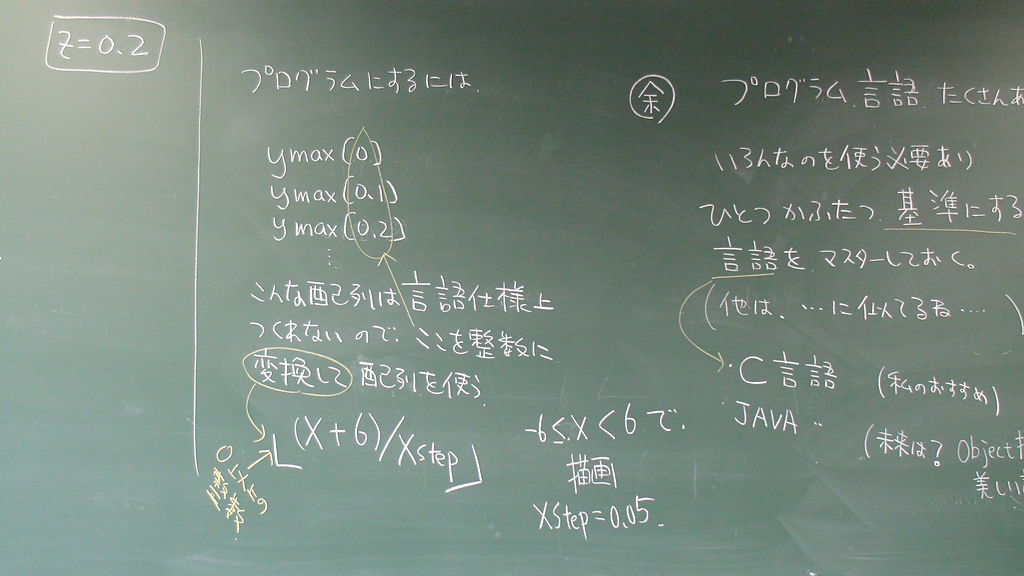 z=0.2
プログラムにするには、
ymax(0)
ymax(0.1)
ymax(0.2)
⋮
こんな配列は言語仕様上
つくれないので、ここを整数に
変換して配列を使う
⌊(x+6)/xstep⌋
-6≤x<6で、
描画
xstep=0.05.
余
プログラム言語 たくさんあ
いろんなのを使う必要あり
ひとつかふたつ 基準にする
言語を マスターしておく。
(他は、…に似てるね…)
・C言語 (私のおすすめ)
JAVA ‥
(未来は? Object指
美しい